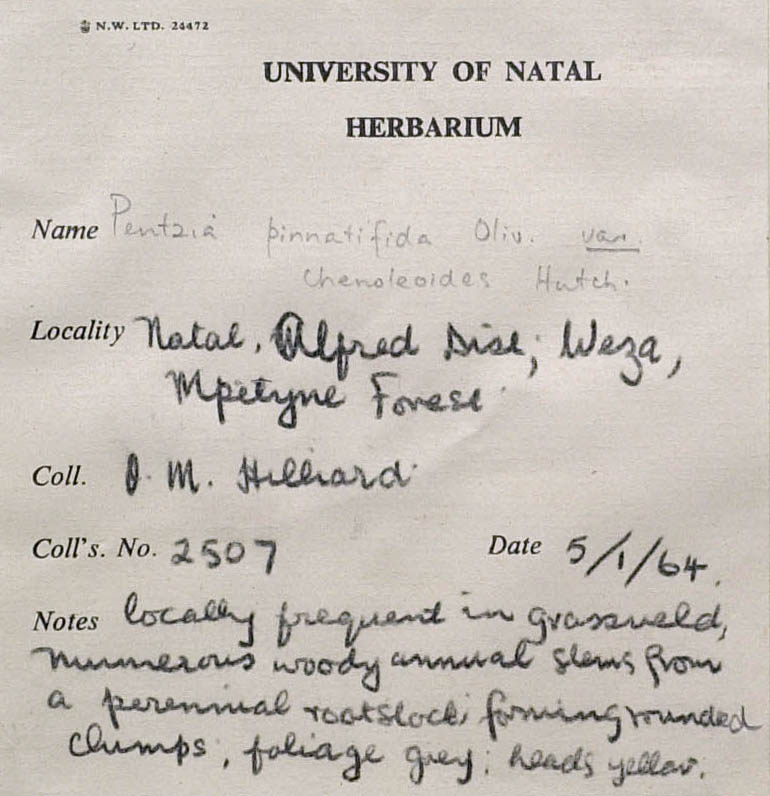 N.W. LTD. 24472
UNIVERSITY OF NATAL
HERBARIUM
Name Pentzia pinnatifida Oliv. var.
Chenoleoides Hutch.
Locality Natal, Alfred Dist; Weza,
Mpetyne Forest
Coll. O. M. Hilliard
Coll's. No. 2507 Date 5/1/64.
Notes locally frequent in grassveld,
numerous woody annual stems from
a perennial rootstock, forming rounded
clumps, foliage grey; heads yellow.